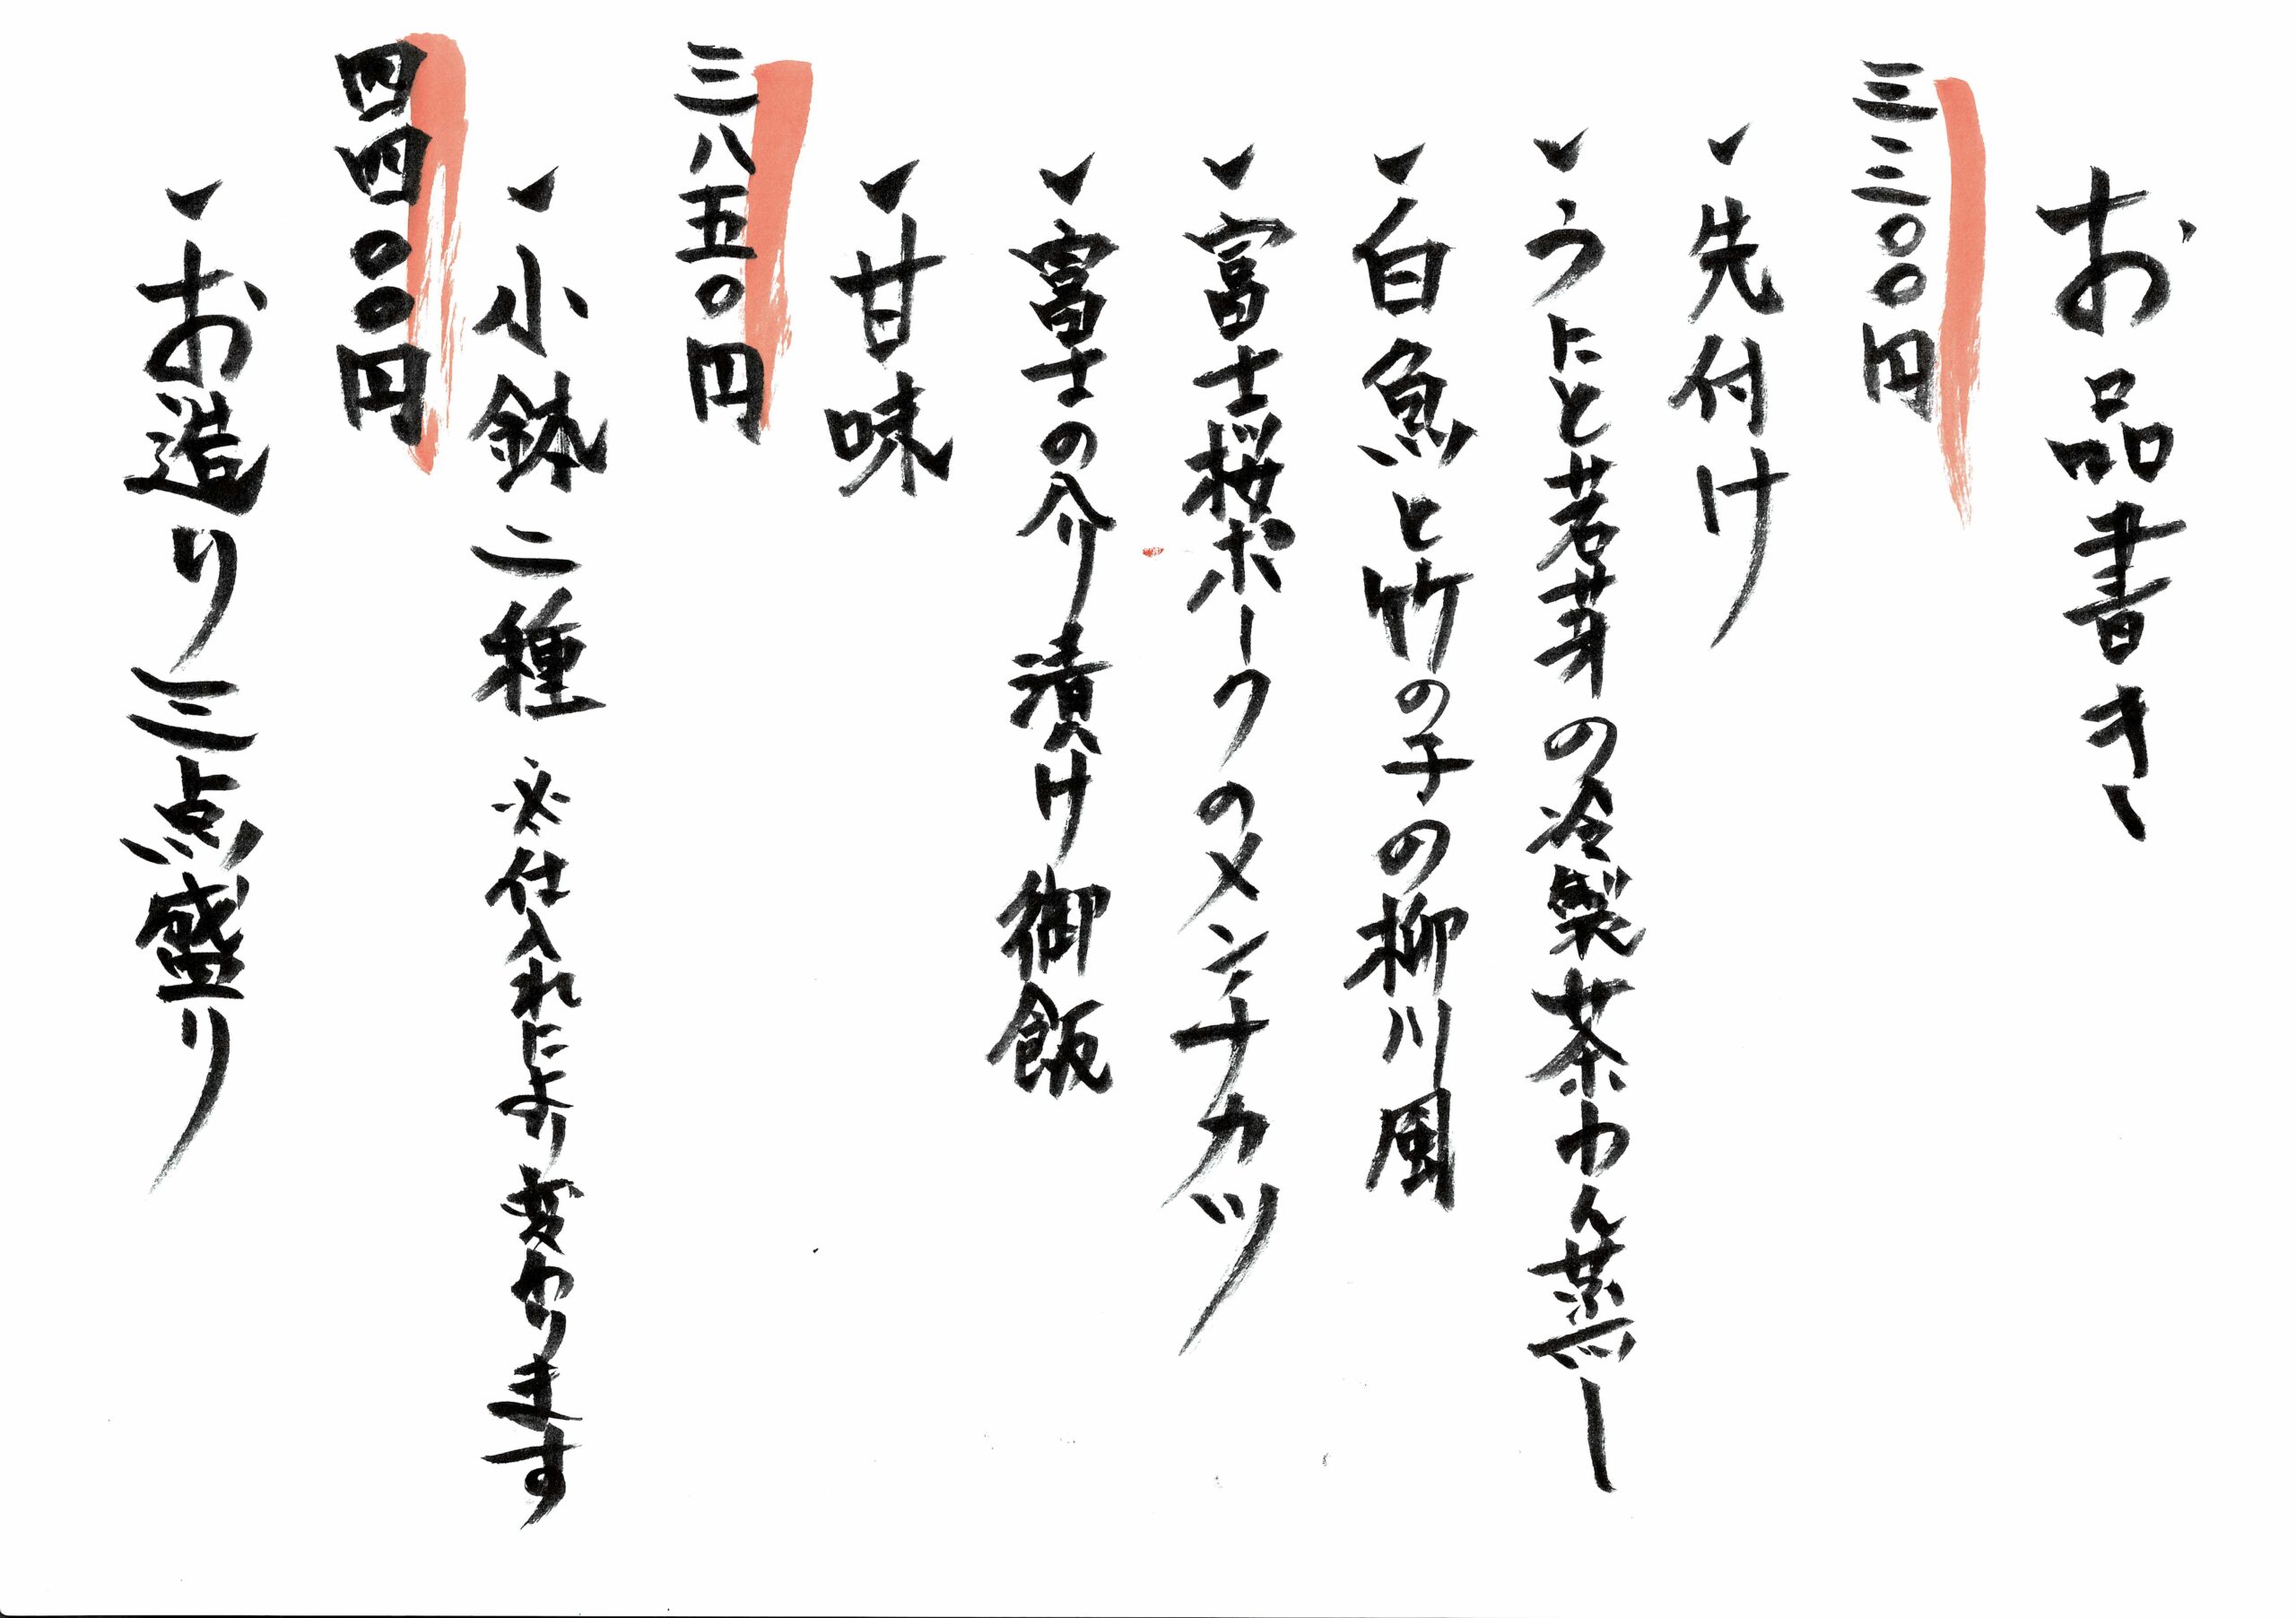 お品書き
三三〇〇円
先付け
うにと若芽の冷製茶わん蒸し
白魚と竹の子の柳川風
富士桜ポークのメンチカツ
富士の介漬け御飯
甘味
三八五〇円
小鉢二種 ※仕入れにより変わります
四四〇〇円
お造り三点盛り